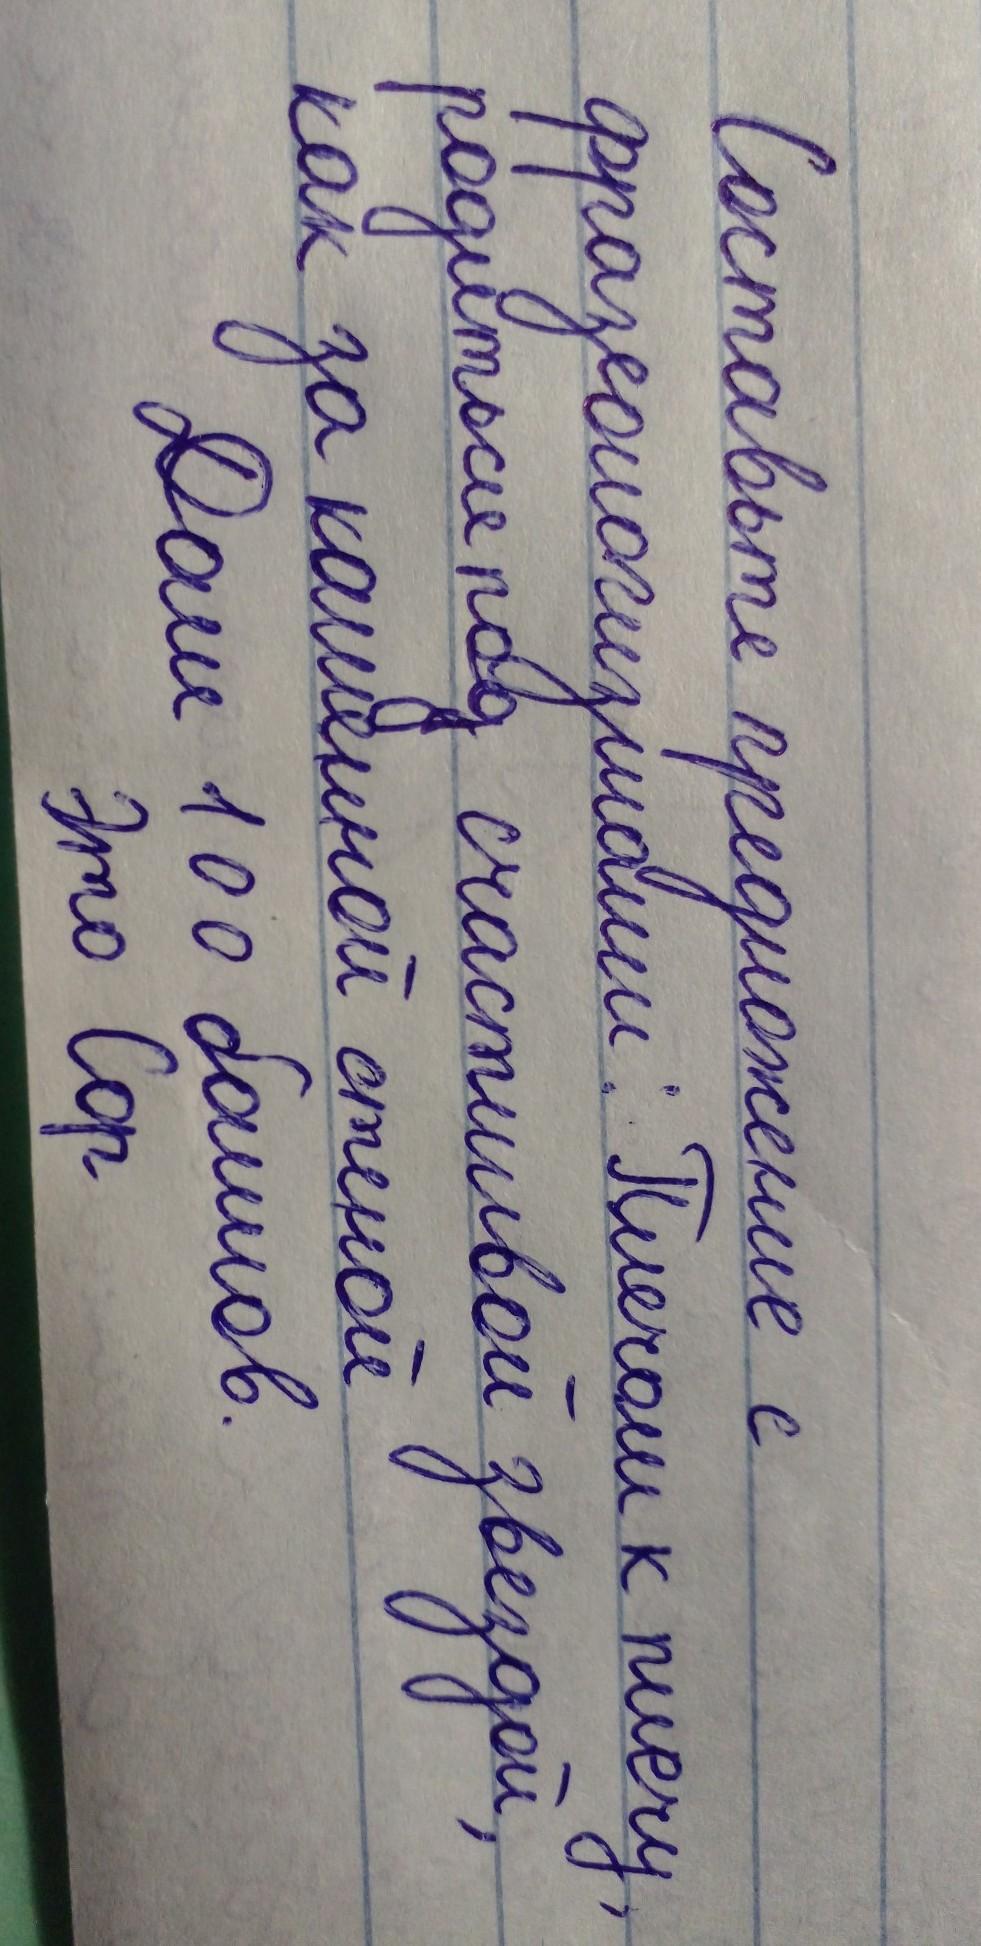 Составьте предложение с
фразеологизмами: Плечом к плечу,
родиться под счастливой звездой,
как за каменной стеной
Дам 100 баллов.
Это Сор